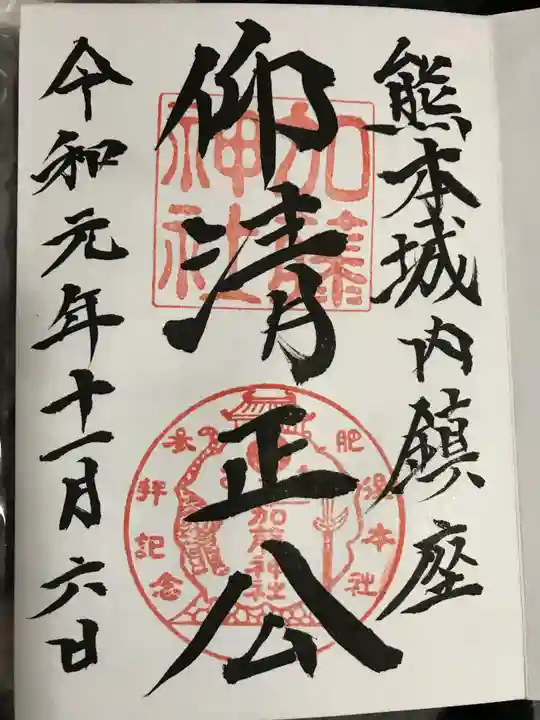 熊本城内鎮座
仰清正公
令和元年十一月六日
加藤
神社
肥後本社
加藤神社
参拝記念